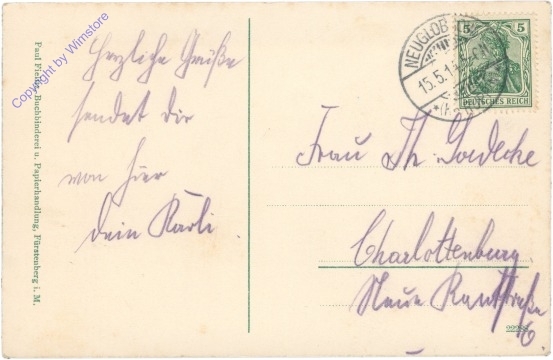 Herzliche Grüße
sendet dir
von hier
dein Karli.
Frau Th. Goedecke
Charlottenburg.
Neue Kantstraße
16
NEUGLOB
15.5.1
5 5
DEUTSCHES REICH
Paul Buchbinderei u. Papierhandlung, Fürstenberg i. M.
Copyright by Wimstore